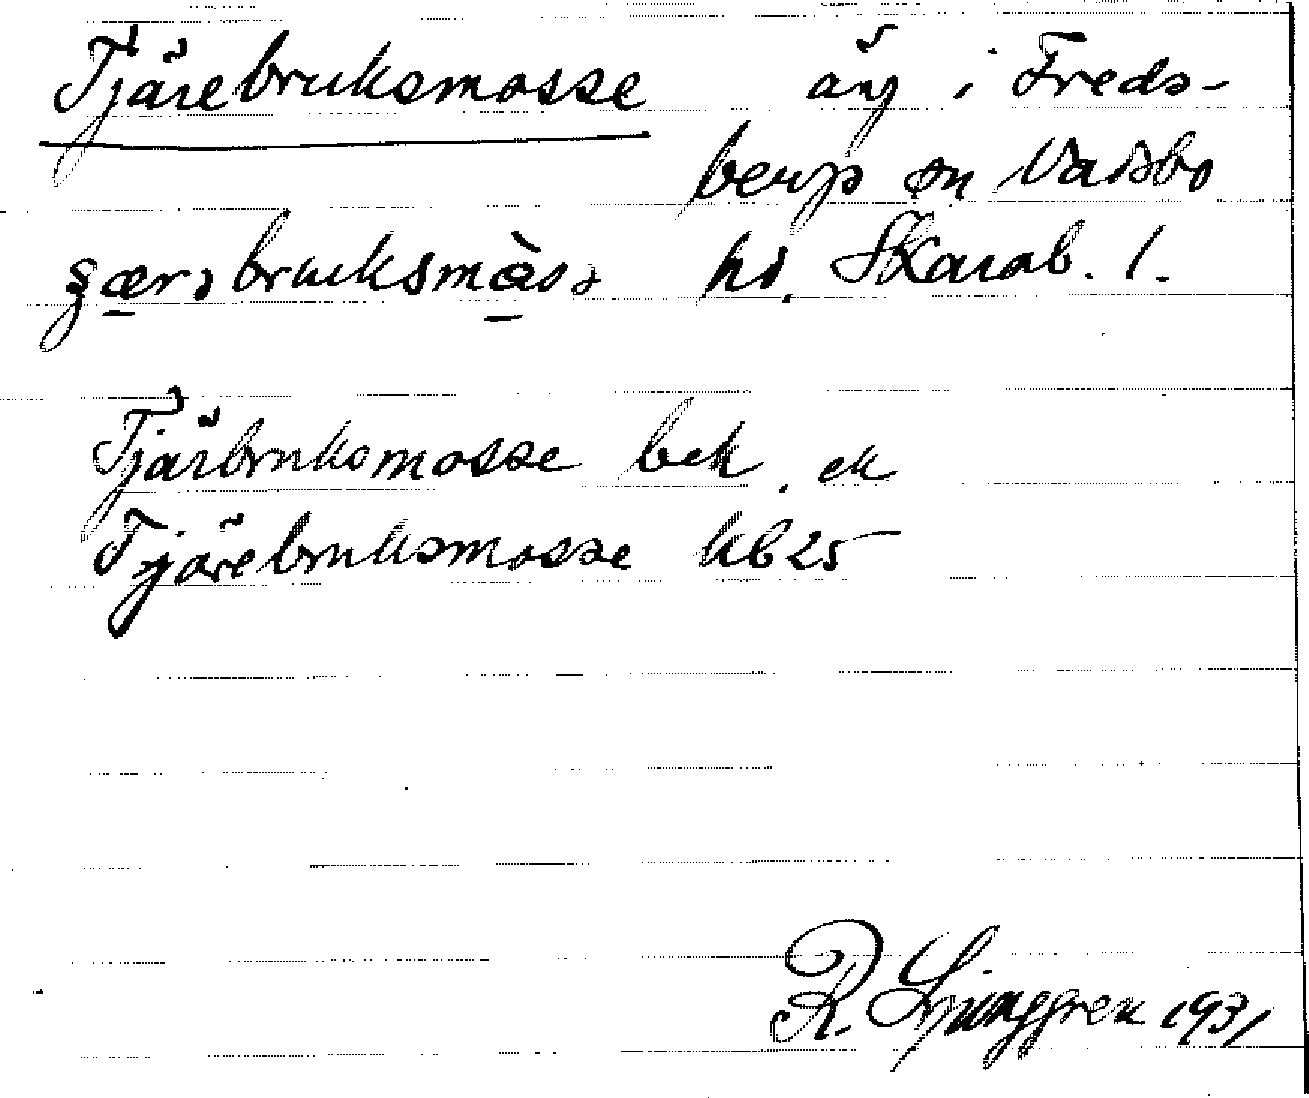 Tjärebruksmosse äg i Freds-
bergs sn Vadsbo
hd. Skarab. l.
Tjärbruksmosse bek. ek
Tjärebruksmosse kb 25
R. Ljunggren 1931